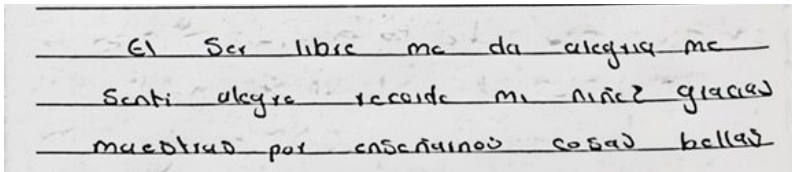 El Ser libre me da alegria me
Senti alegre recorde mi niñez gracias
maestras por enseñarnos cosas bellas